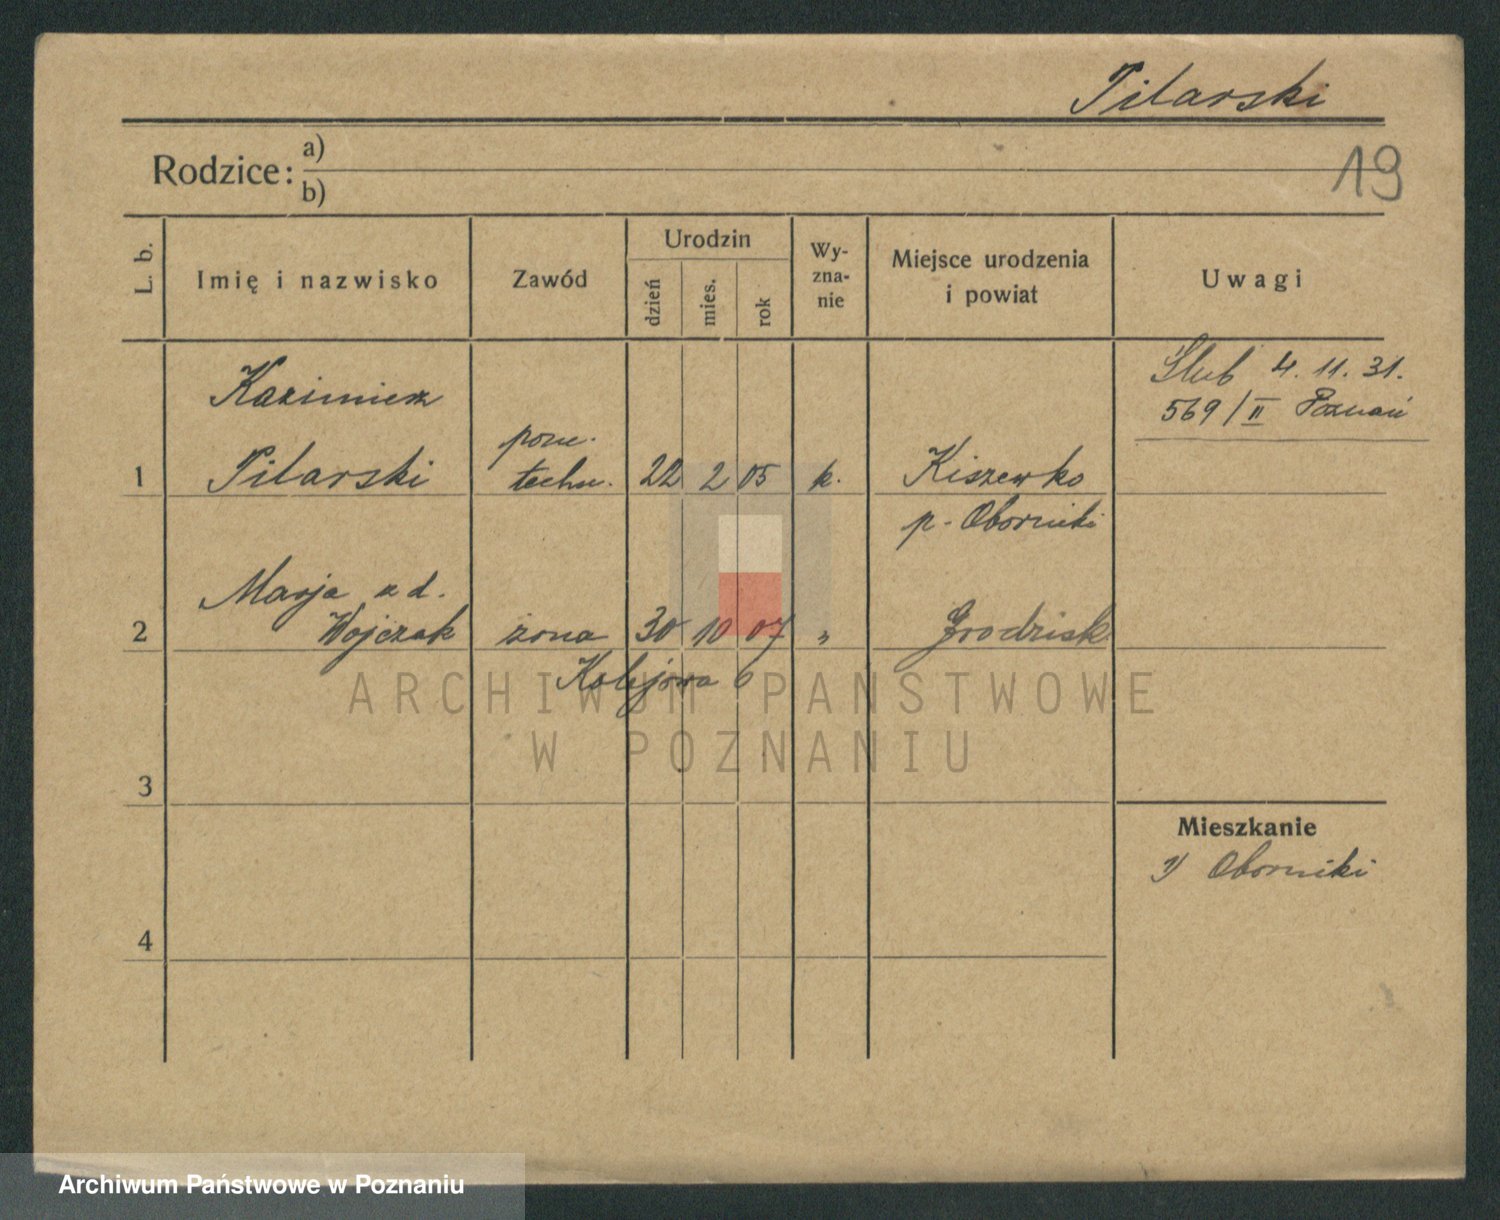 Pilarski
Rodzice: a)
b)
19
L. b.
Imię i nazwisko
Zawód
Urodzin
dzień
mies.
rok
Wy-
zna-
nie
Miejsce urodzenia
i powiat
Uwagi
Ślub 4. 11. 31.
569/II Poznań
Kazimierz
1 Pilarski
pom.
techn. 22 2 05 k. Kiszewko
p. Oborniki
Marja z d.
2 Wojczak żona 30 10 07 " Grodzisk
Kolejowa 6
ARCHIWUM PAŃSTWOWE
W POZNANIU
3
Mieszkanie
1) Oborniki
4
Archiwum Państwowe w Poznaniu